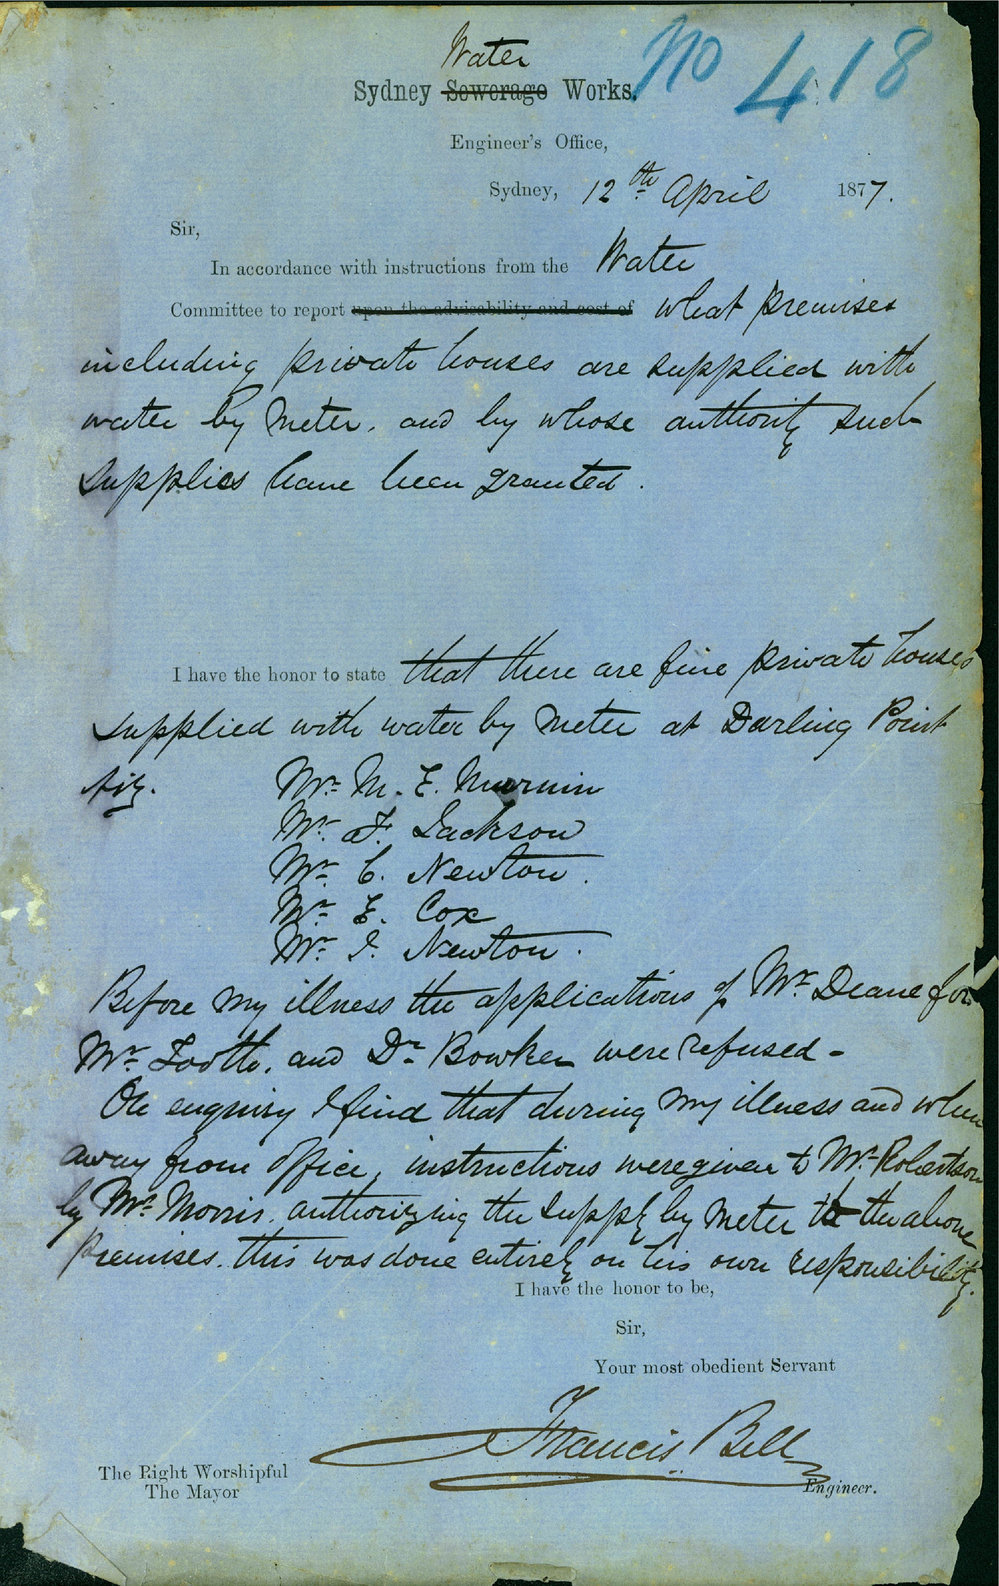 Water
Sydney Sewerage Works. No 418
Engineer's Office,
Sydney, 12th April 1877.
Sir,
In accordance with instructions from the Water
Committee to report upon the advisability and cost of what premises
including private houses are supplied with
water by Meter, and by whose authority such
supplies have been granted.
I have the honor to state that there are five private houses
supplied with water by Meter at Darling Point
viz.
Mr. M. E. Murnin
Mr. F. Jackson
Mr. C. Newton.
Mr. E. Cox
Mr. I. Newton.
Before my illness the applications of Mr. Deane for
Mr. Tooth, and Dr. Bowker were refused -
On enquiry I find that during my illness and when
away from office, instructions were given to Mr. Robertson
by Mr. Morris, authorizing the supply by Meter to the above
premises. this was done entirely on his own responsibility.
I have the honor to be,
Sir,
Your most obedient Servant
Francis Bell
Engineer.
The Right Worshipful
The Mayor